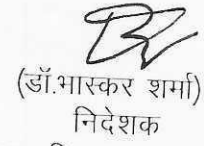 (डॉ.भास्कर शर्मा)
निदेशक